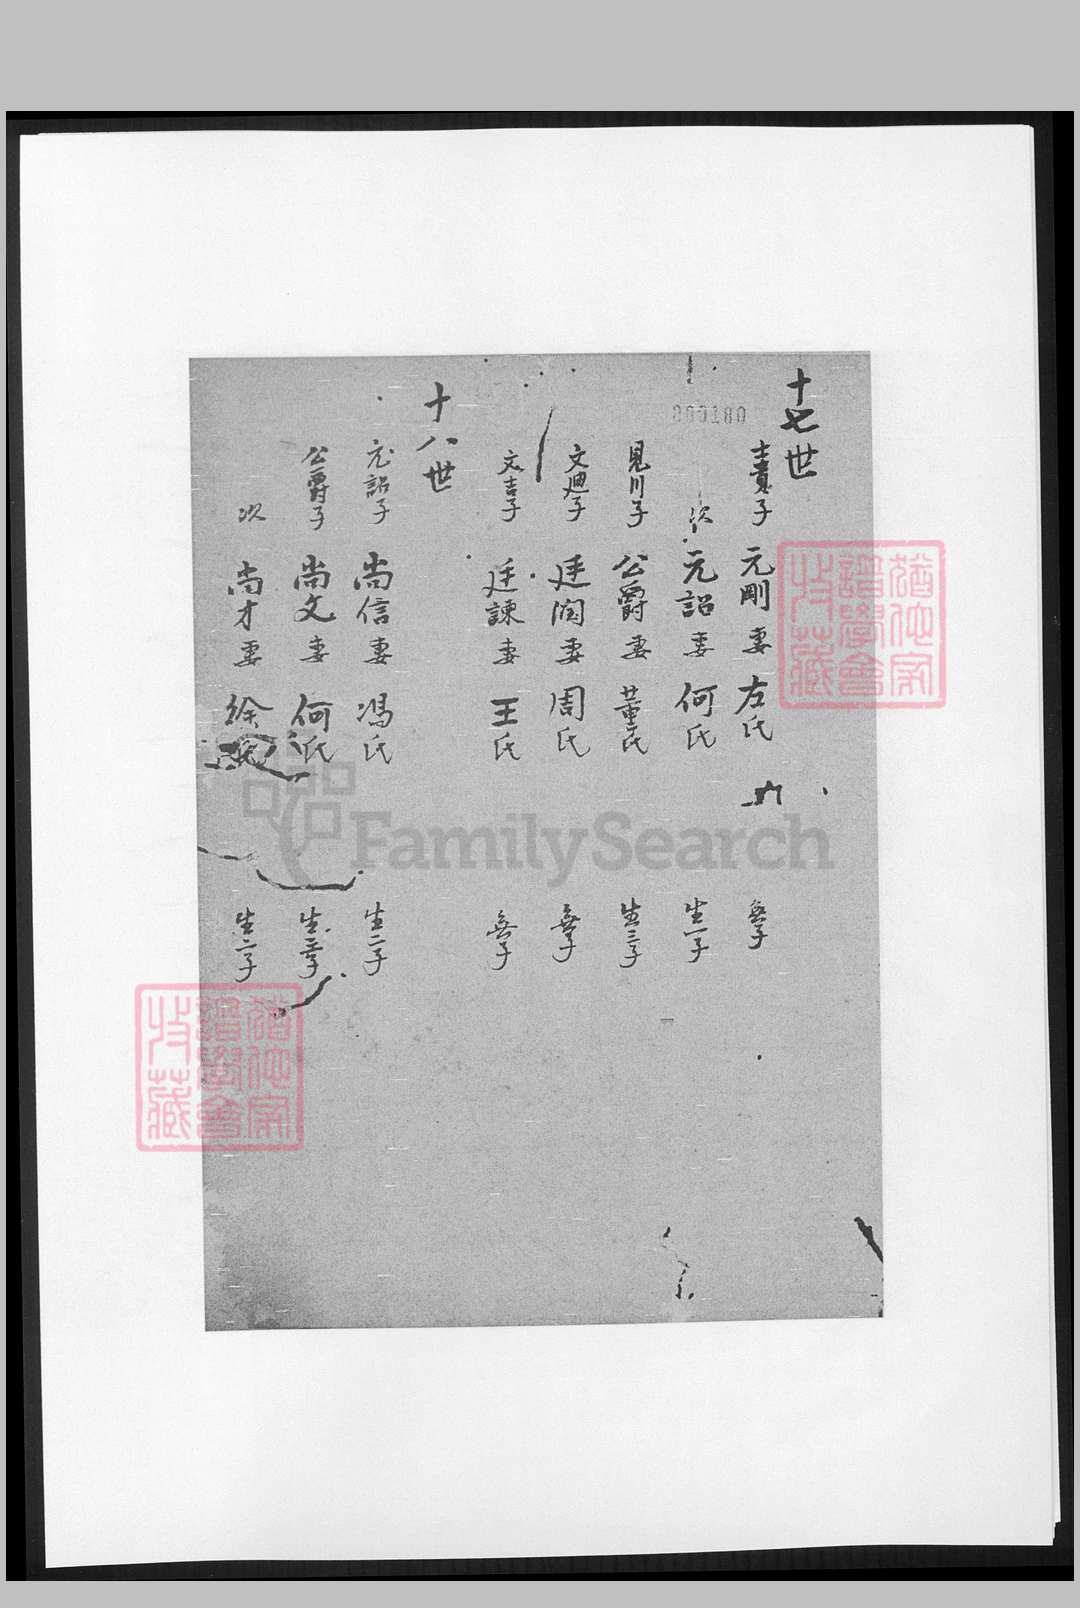 十七世
士貴子 元剛妻左氏 無子
次 元詔妻何氏 生一子
見川子 公爵妻董氏 生三子
文迴子 廷潤妻周氏 無子
文吉子 廷諫妻王氏 無子
十八世
元詔子 尚信妻馮氏 生二子
公爵子 尚文妻何氏 生子
次 尚才妻徐氏 生二子
000180
FamilySearch